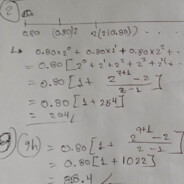 ②
0.80 (0.80)² 2(2(0.80)) . . .
0.80×2⁰ + 0.80×2¹ + 0.80×2² +
= 0.80 [2⁰ + 2¹ + 2² + 2³ + 2⁴ +
= 0.80 [1 + (2⁷⁺¹ − 2)/(2 − 1)]
= 0.80 [1 + 254]
= 204/
9h) = 0.80 [1 + (2⁹⁺¹ − 2)/(2 − 1)
= 0.80 [1 + 1022]